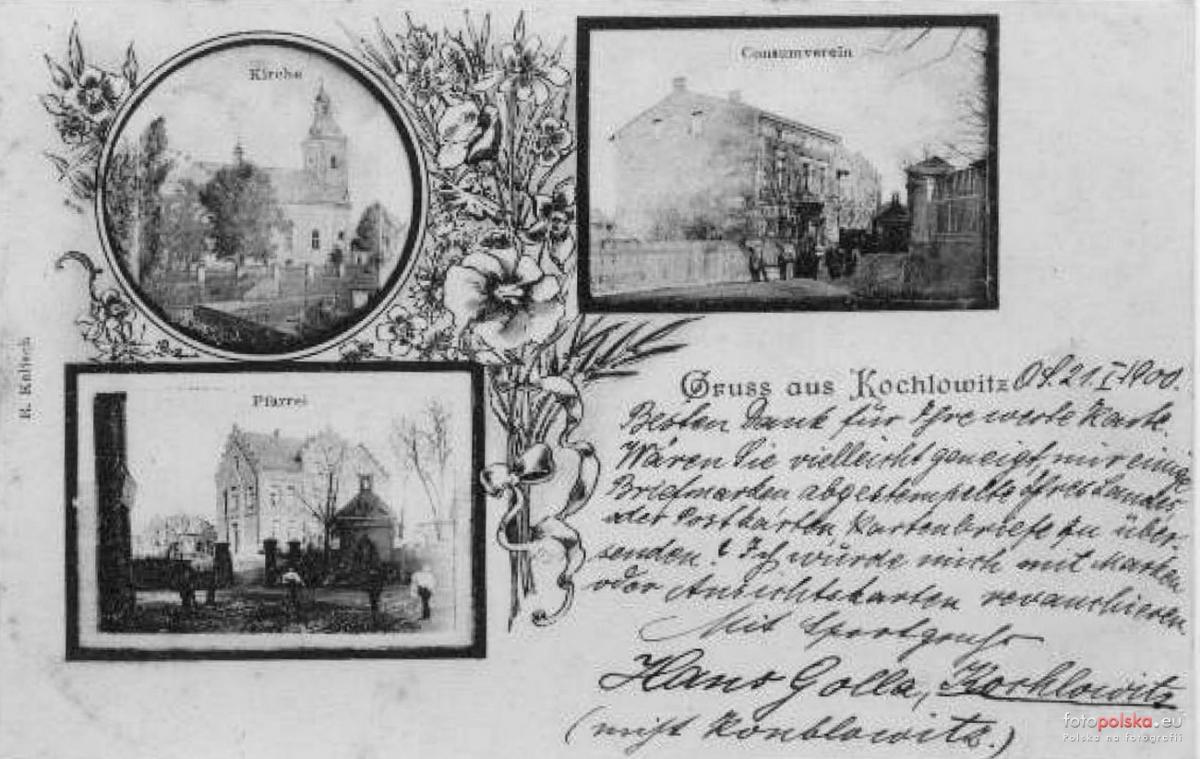 Kirche
Consumverein
Pfarrei
R. Kalisch
Gruss aus Kochlowitz
O/S. 21. I. 1900.
Besten Dank für Ihre werte Karte.
Wären Sie vielleicht geneigt, mir einige
Briefmarken abgestempelte Ihres Landes
oder Postkarten, Kartenbriefe zu über-
senden? Ich würde mich mit Marken
oder Ansichtskarten revanchieren.
Mit Sportgruß
Hans Golla, Kochlowitz
(nicht Konblowitz.)
fotopolska.eu
Polska na fotografii